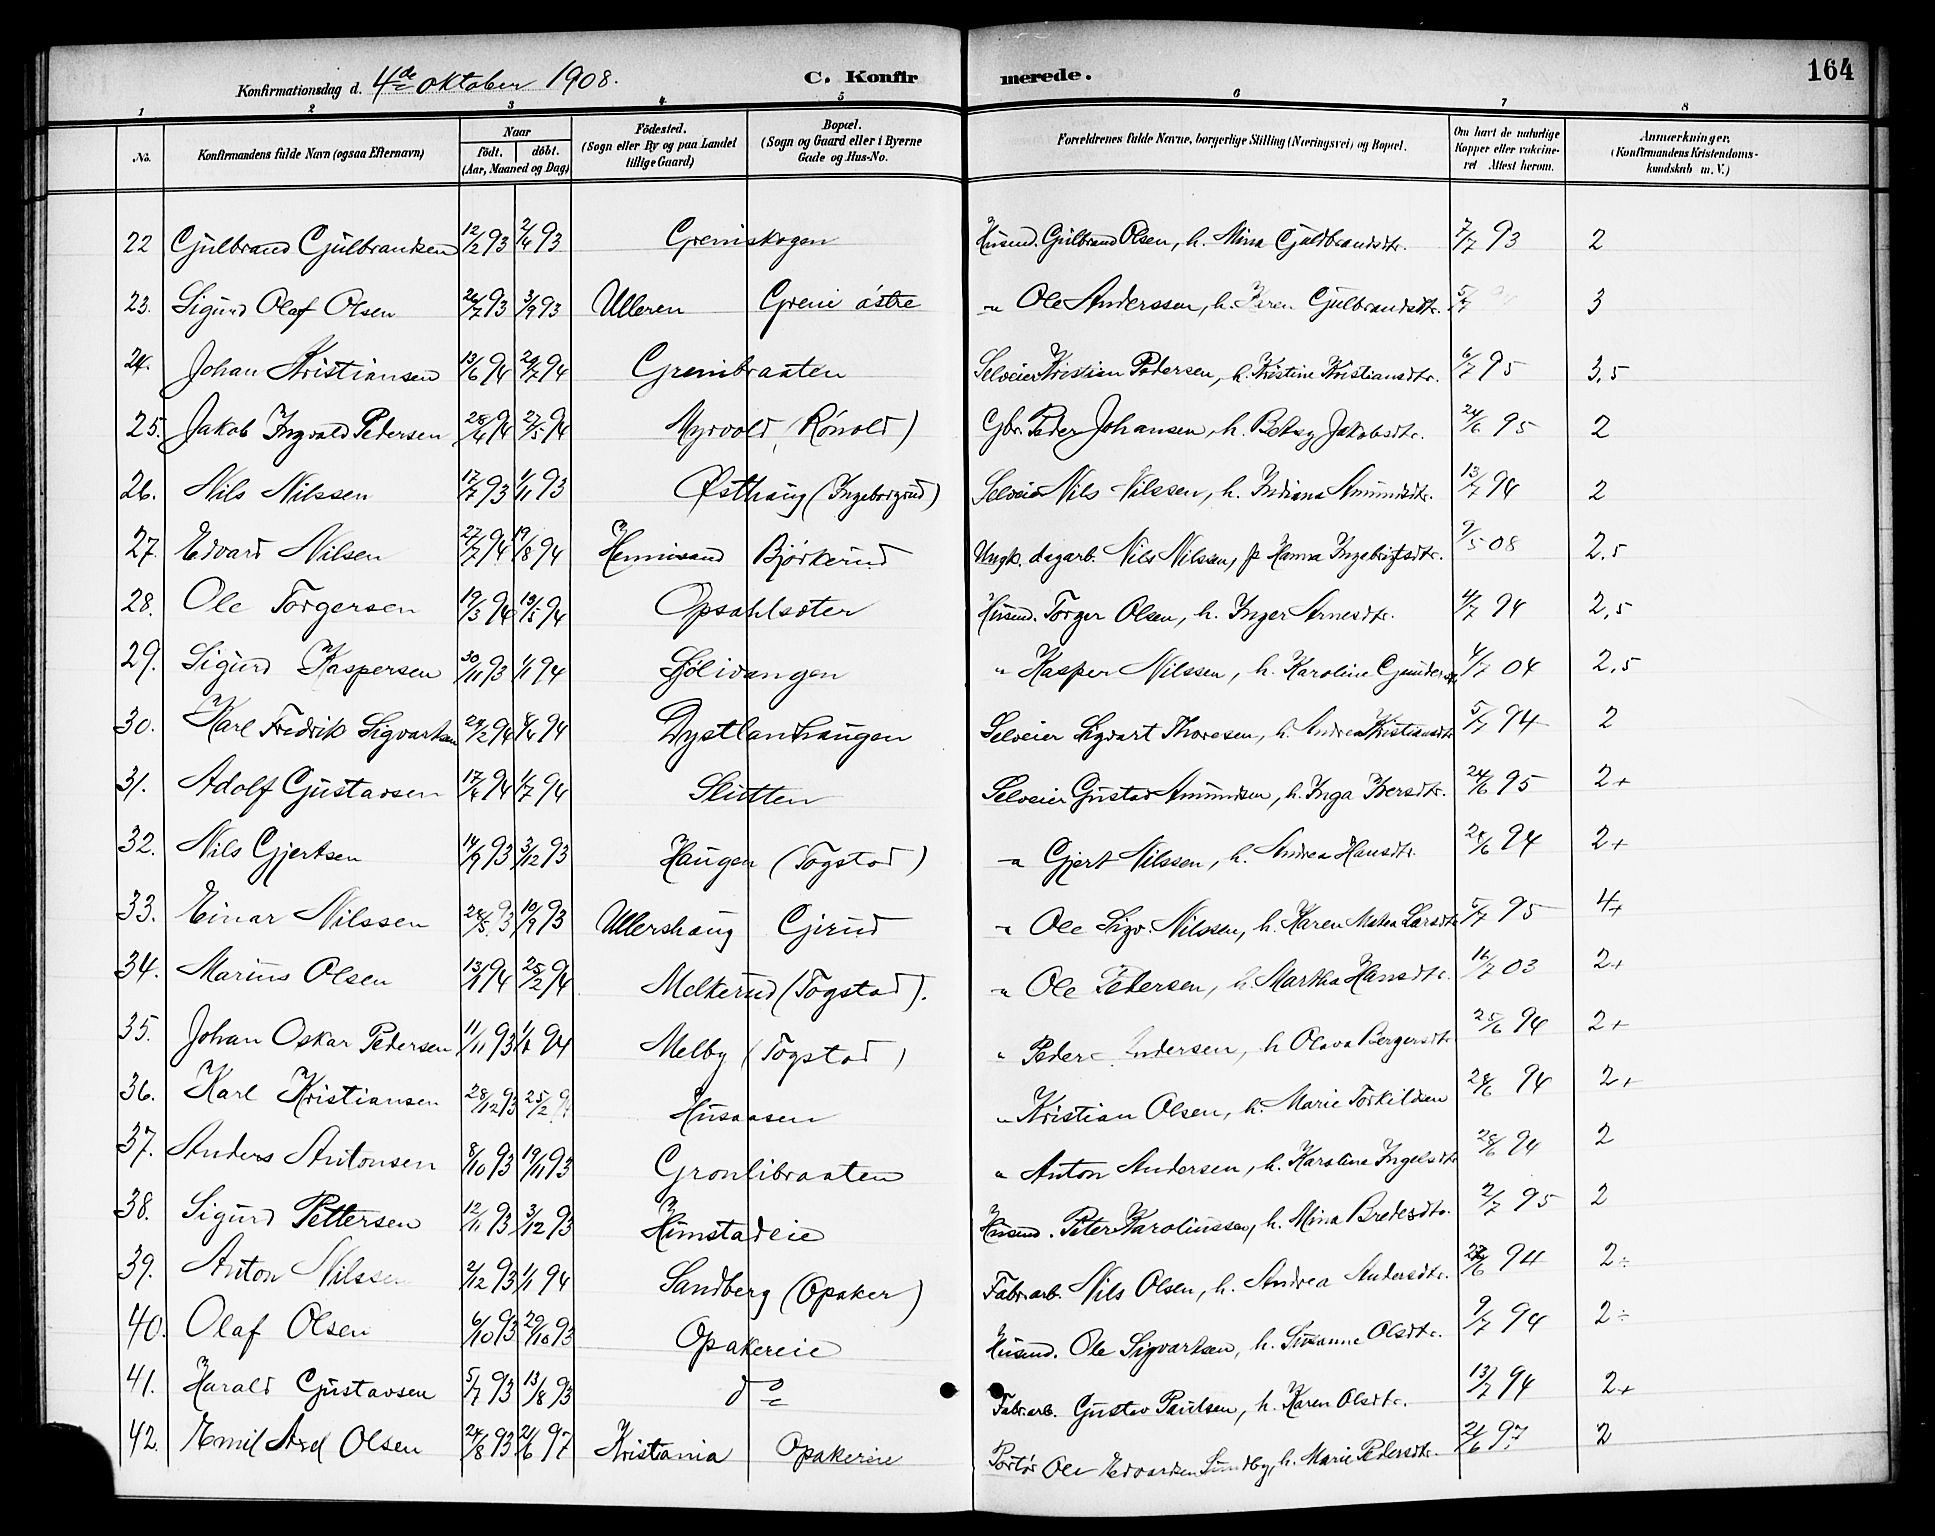 164
Konfirmationsdag d. 4de oktober 1908.
C. Konfirmerede.
1 2 3 4 5 6 7 8
No.
Konfirmandens fulde Navn (ogsaa Efternavn)
Naar
födt. döbt.
(Aar, Maaned og Dag)
Födested.
(Sogn eller By og paa Landet
tillige Gaard)
Bopæl.
(Sogn og Gaard eller i Byerne
Gade og Hus-No.
Forældrenes fulde Navne, borgerlige Stilling (Næringsvei) og Bopæl.
Om havt de naturlige
Kopper eller vakcine-
ret Attest herom.
Anmærkninger,
(Konfirmandens Kristendoms-
kundskab m. V.)
22 Gulbrand Gulbrandsen 12/2 93 2/4 93 Greniskogen Husmd. Gulbrand Olsen, h. Mina Guldbrandsdtr. 7/7 93 2
23. Sigurd Olaf Olsen 26/7 93 3/9 93 Ulleren Greni östre -"- Ole Anderssen, h. Karen Gulbrandsdtr. 3
24. Johan Kristiansen 13/6 94 29/7 94 Grenibraaten Selveier Kristian Pedersen, h. Kristine Kristiansdtr. 6/7 95 3,5
25. Jakob Ingvald Pedersen 28/4 94 27/5 94 Myrvold (Rönold) Gbr. Peder Johansen, h. Betsy Jakobsdtr. 24/6 95 2
26. Nils Nilssen 17/7 93 1/11 93 Østhaug (Ingeborgrud) Selveier Nils Nilssen, h. Indiana Amundsdtr. 13/7 94 2
27. Edvard Nilsen 27/7 94 19/8 94 Hennisand Björkerud Ungk. dagarb. Nils Nilssen, p. Hanna Ingebrigtsdtr. 9/5 08 2,5
28. Ole Torgersen 19/3 94 13/5 94 Opsahlsöter Husmd. Torger Olsen, h. Inger Arnesdtr. 4/7 94 2,5
29. Sigurd Kaspersen 30/11 93 1/1 94 Sjölivangen " Kasper Nilssen, h. Karoline Gundersdtr. 4/7 04 2,5
30. Karl Fredrik Sigvartsen 24/2 94 8/4 94 Dystlandhaugen Selveier Sigvart Thoresen, h. Andrea Kristiansdtr. 5/7 94 2
31. Adolf Gustavsen 17/4 94 1/7 94 Slutten Selveier Gustav Amundsen, h. Inga Iversdtr. 24/6 95 2+
32. Nils Gjertsen 14/9 93 3/12 93 Haugen (Togstad) -"- Gjert Nilssen, h. Andrea Hansdtr. 25/6 94 2+
33. Einar Nilssen 24/5 93 10/9 93 Ullershaug Gjirud -"- Ole Sigv. Nilssen, h. Karen Matea Larsdtr. 5/7 95 4+
34. Marius Olsen 13/1 94 25/2 94 Melkerud (Togstad). -"- Ole Pedersen, h. Martha Hansdtr. 16/7 03 2+
35. Johan Oskar Pedersen 11/11 93 1/1 94 Melby (Togstad) " Peder Andersen, h. Olava Bergersdtr. 25/6 94 2+
36. Karl Kristiansen 28/12 93 25/2 Husaasen " Kristian Olsen, h. Marie Torkildsen 28/6 94 2+
37. Anders Antonsen 8/10 93 19/11 93 Gronlibraaten " Anton Andersen, h. Karoline Ingelsdtr. 28/6 94 2
38. Sigurd Pettersen 12/11 93 3/12 93 Himstadeie Husmd. Peter Karoliussen, h. Mina Bredesdtr. 2/7 95 2
39. Anton Nilssen 2/12 93 1/1 94 Sandberg (Opaker) Fabr.arb. Nils Olsen, h. Andrea Andersdtr. 94 2÷
40. Olaf Olsen 6/10 93 29/10 93 Opakereie Husmd. Ole Sigvartsen, h. Susanne Olsdtr. 9/7 94 2÷
41. Harald Gustavsen 5/7 93 13/8 93 do Fabr.arb. Gustav Paulsen, h. Karen Olsdtr. 13/7 94 2+
42. Emil Axel Olsen 24/8 93 21/6 97 Kristania Opakereie Portör Ole Edvardsen Sundby, h. Marie Pedersdtr. 21/6 97 2